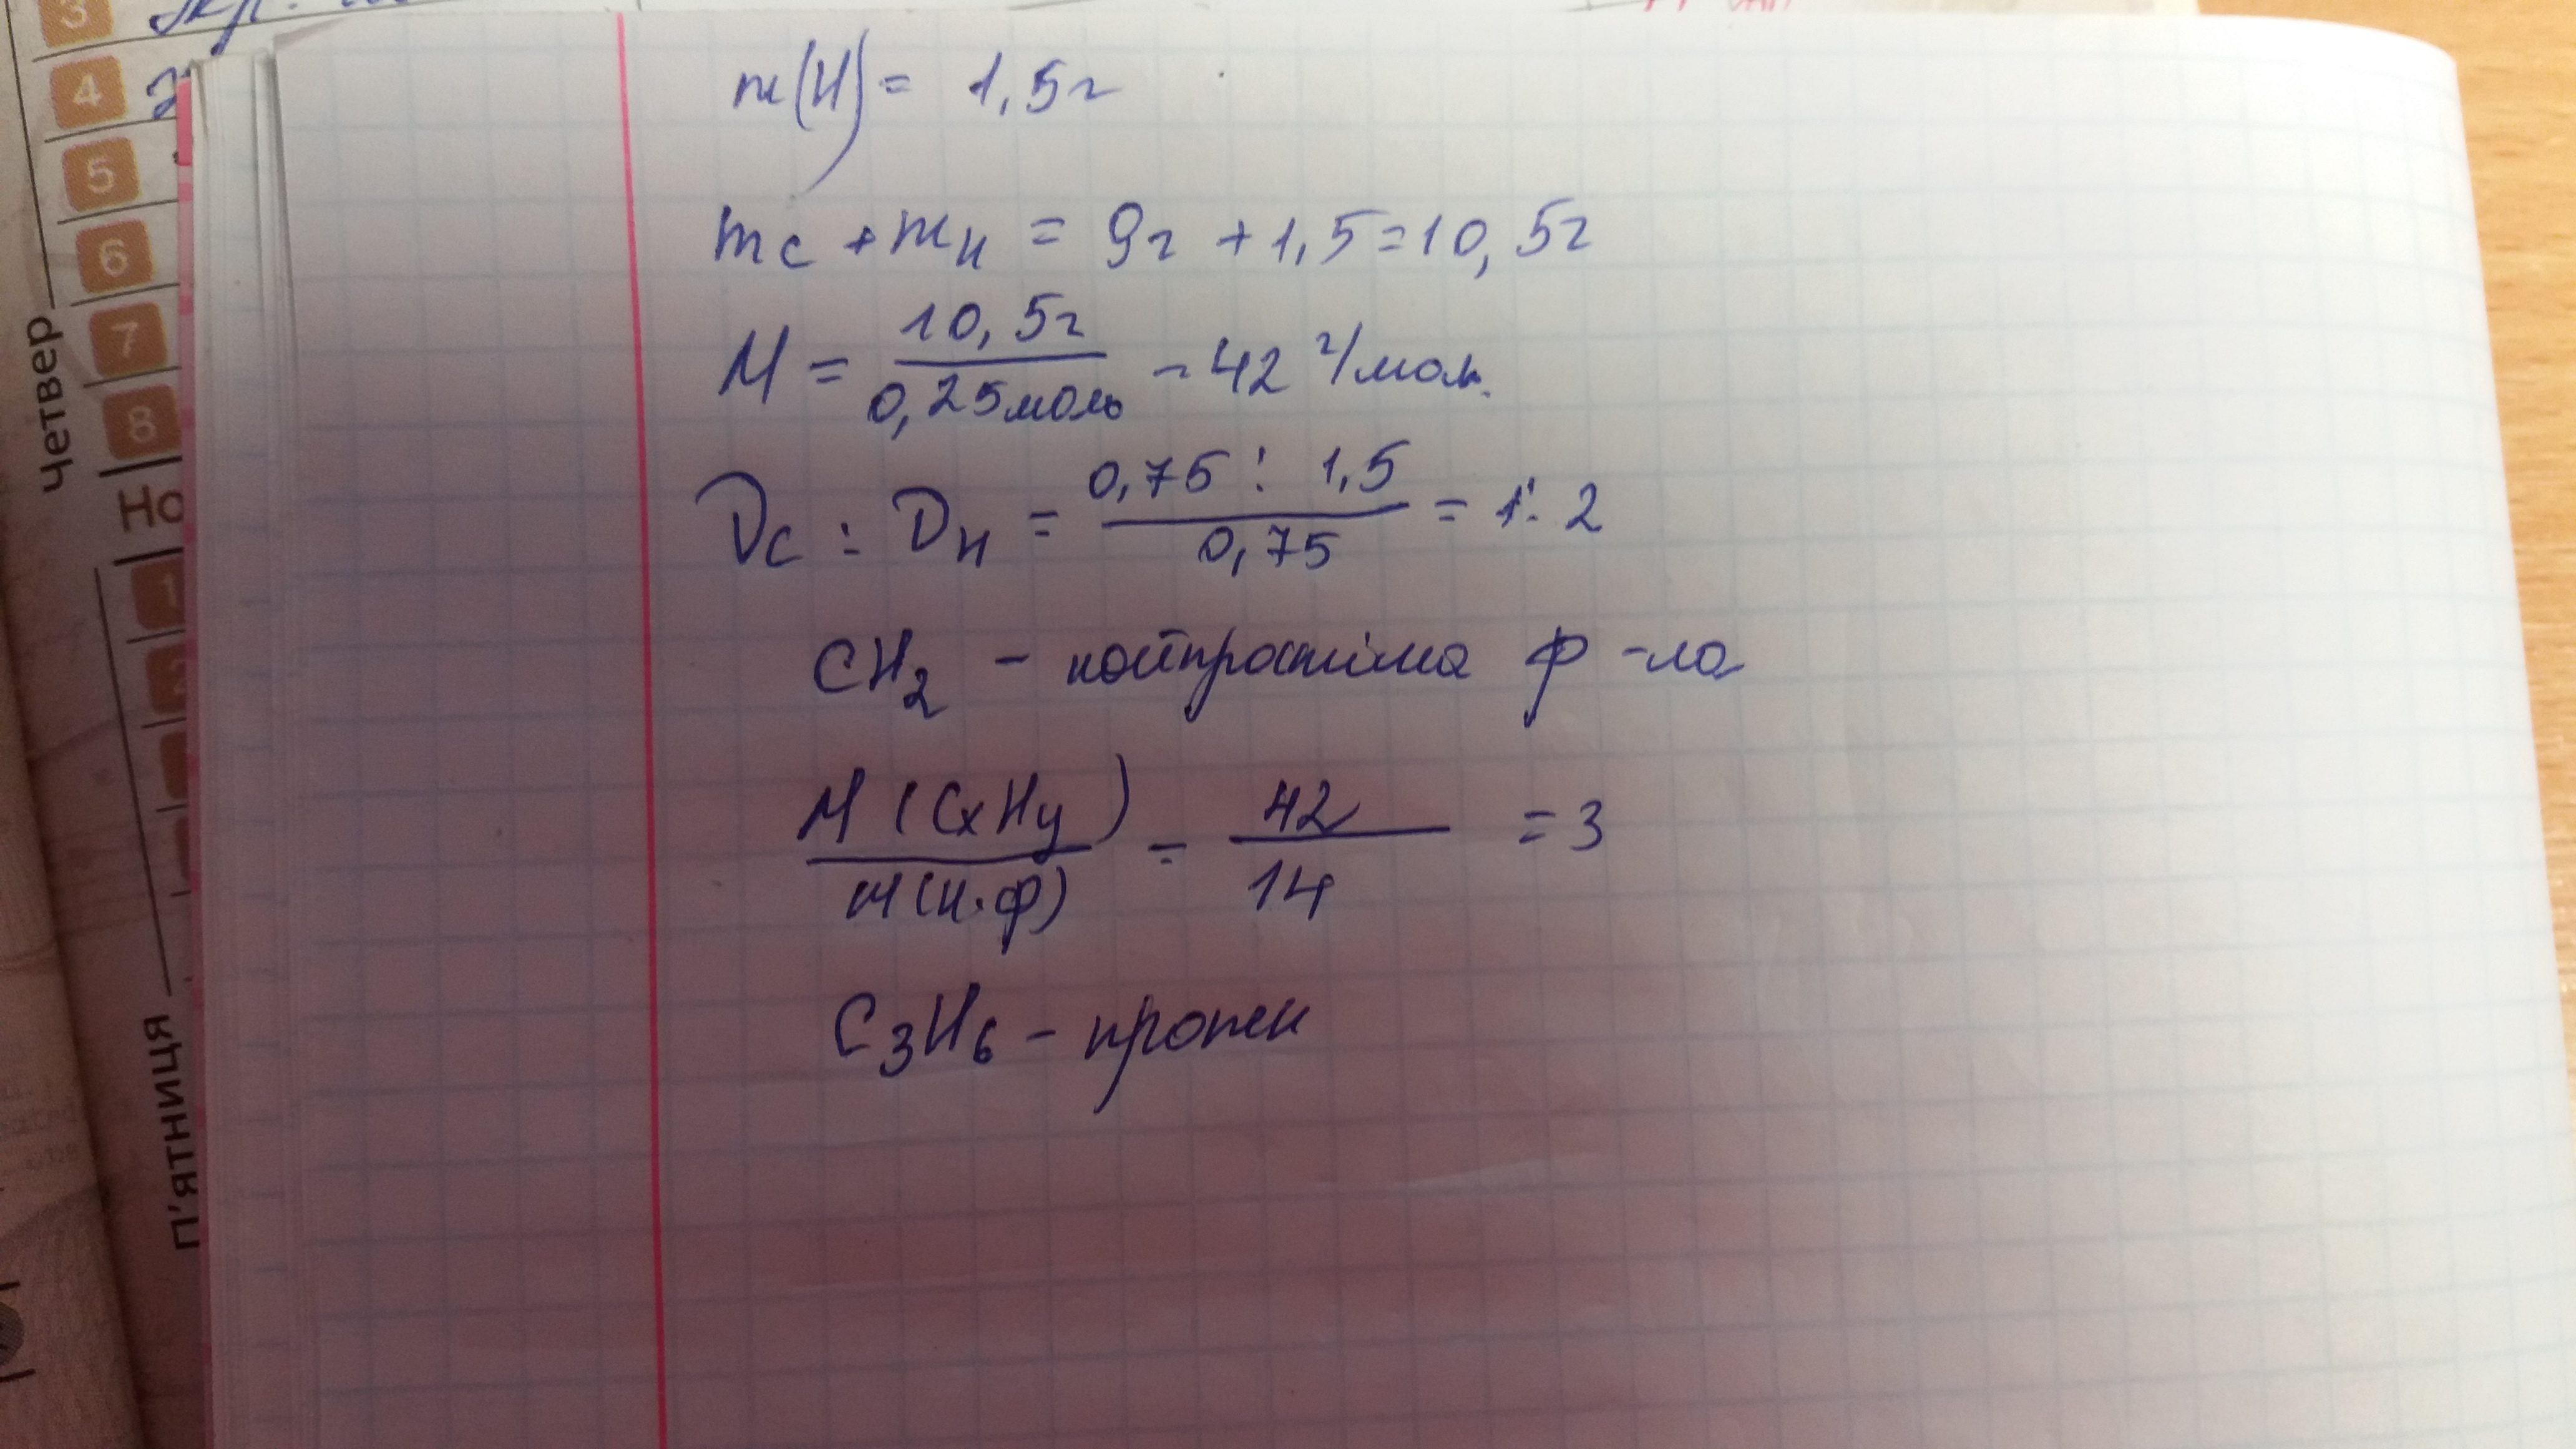 3
4
5
6
7
8
Четвер
Но
1
2
П'ятниця
m(H) = 1,5г
mc + mн = 9г + 1,5 = 10,5г
M = 10,5г / 0,25моль - 42 г/моль.
Dc : Dн = 0,75 : 1,5 / 0,75 = 1 : 2
CH₂ - найпростіша ф-ла
M (CxHy) / M(н.ф) = 42 / 14 = 3
C₃H₆ - пропен